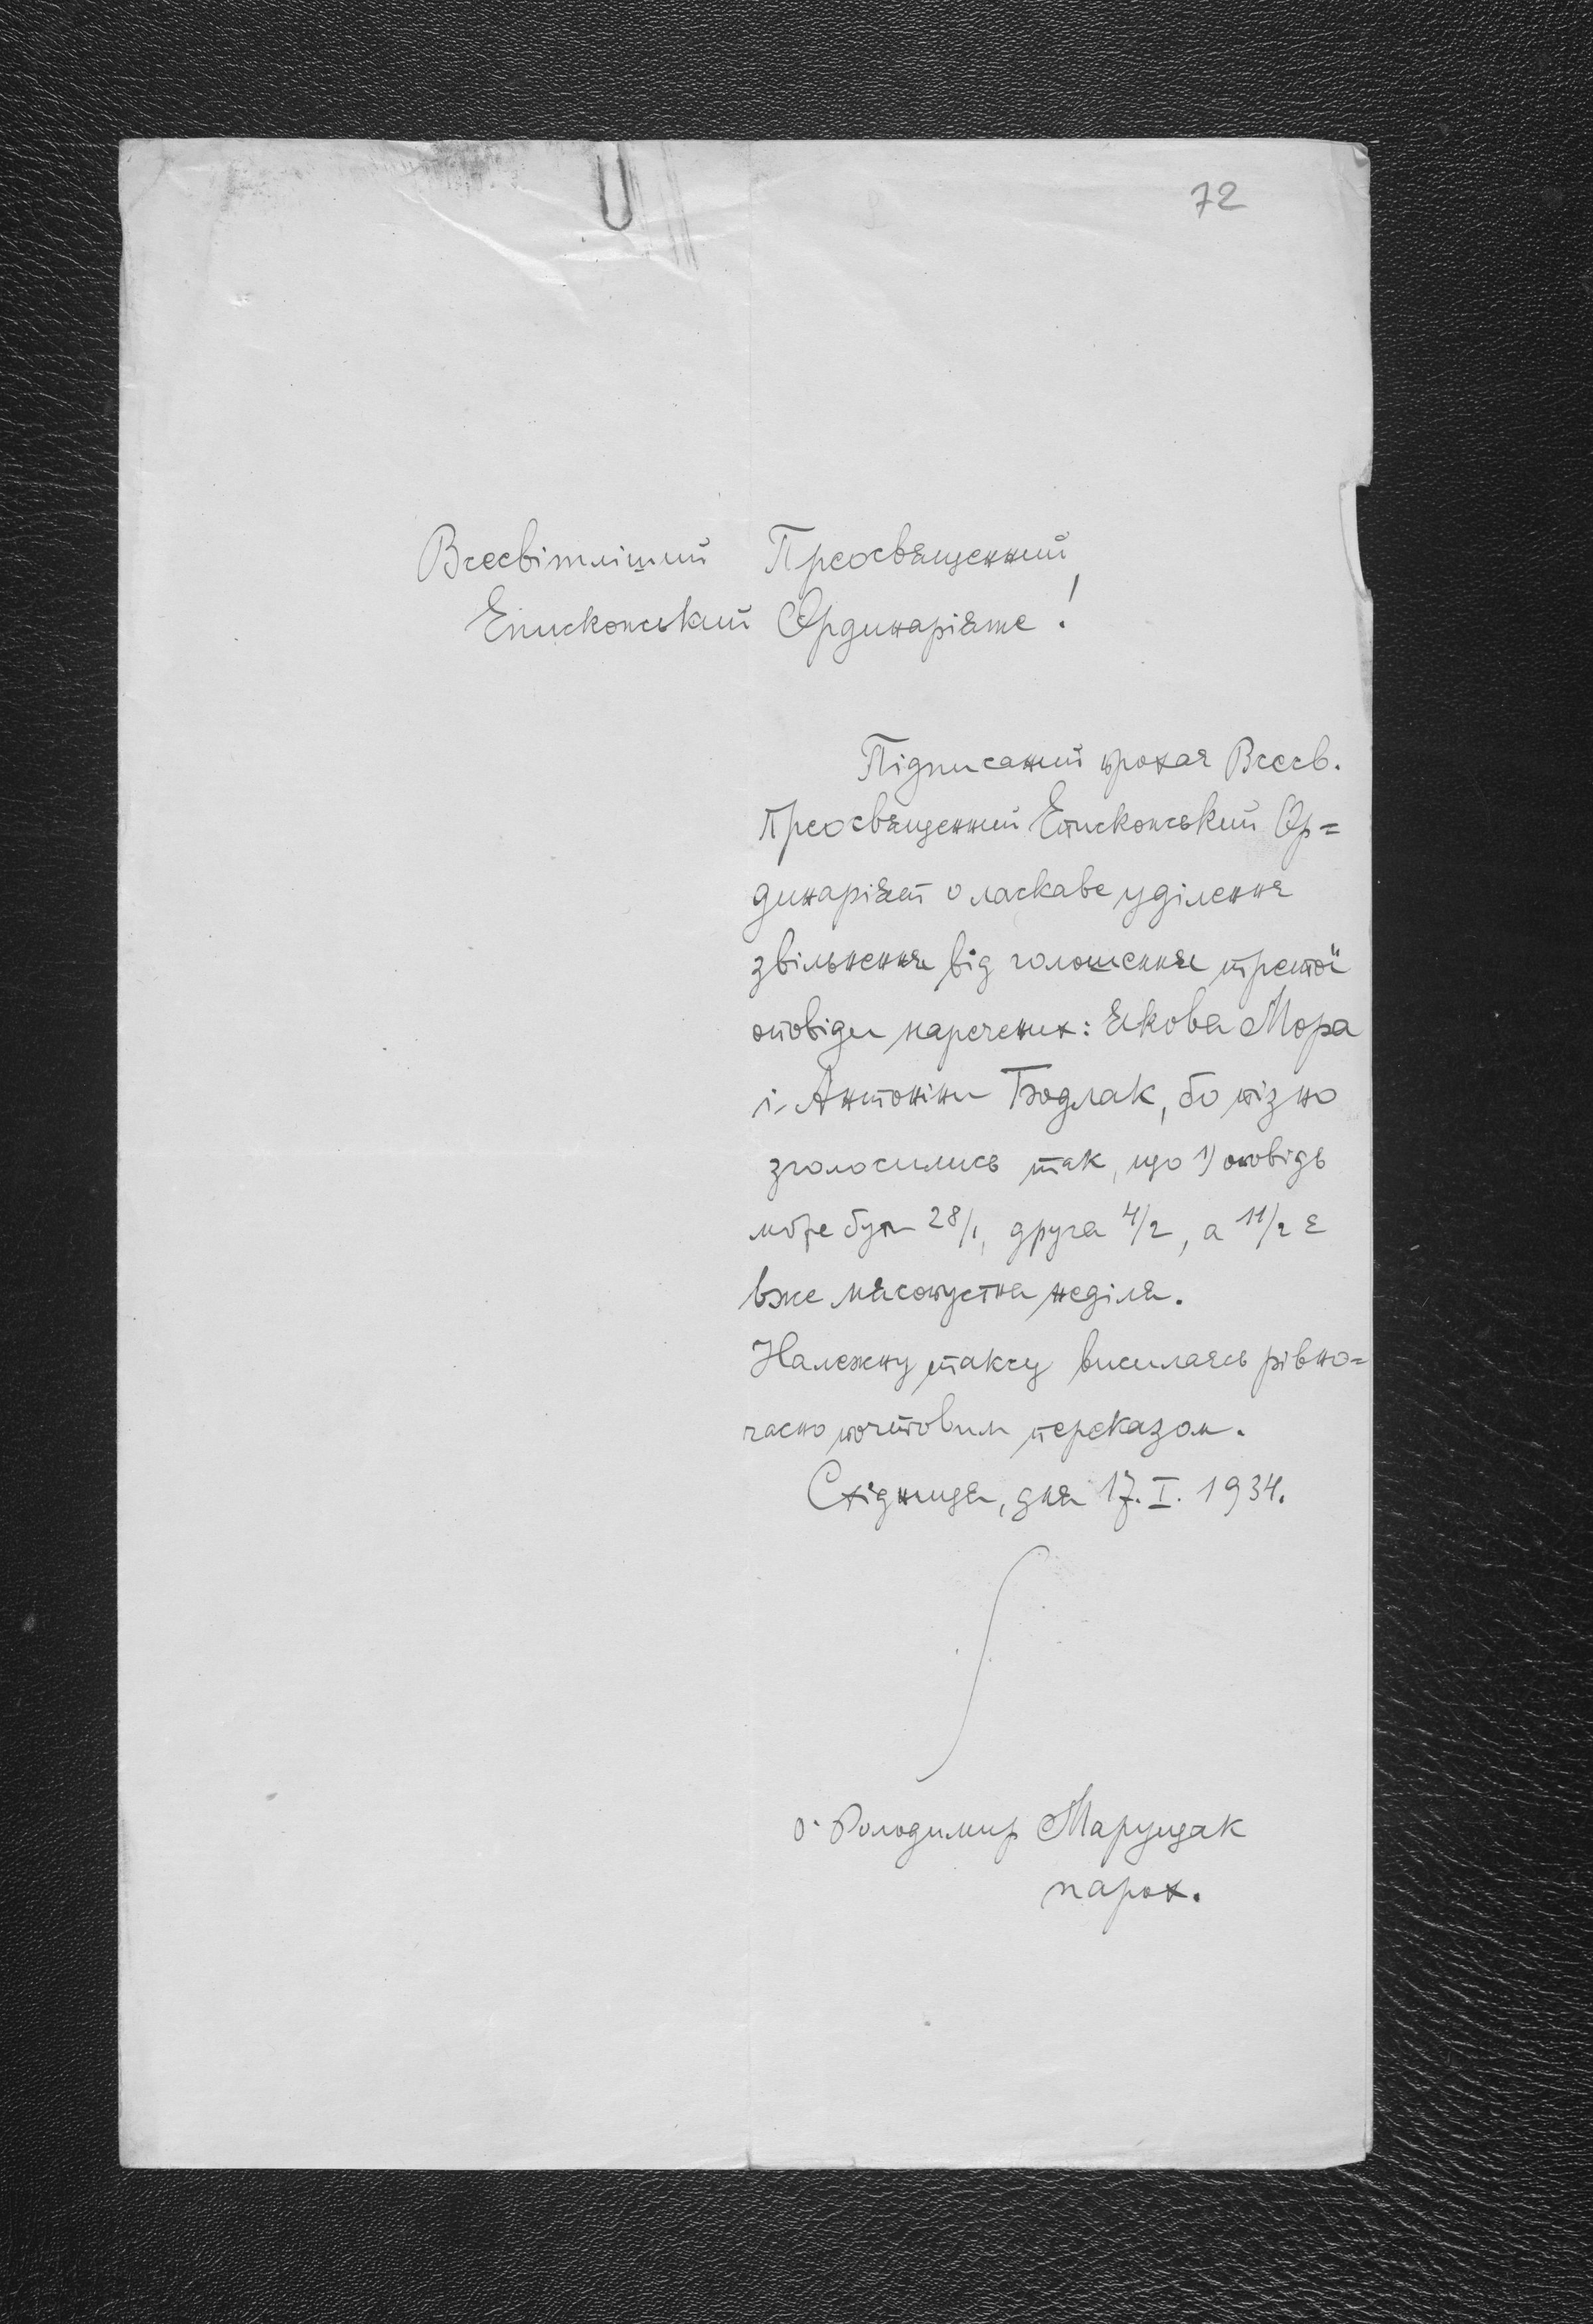 72
Всесвітліший Преосвященний
Епископський Ординаріяте!
Підписаний прохає Всесв.
Преосвященний Епископський Ор=
динаріят о ласкаве уділення
звільнення від голошення третої
оповіди наречених: Якова Мора
і Антоніни Бодлак, бо пізно
зголосились так, що 1) оповідь
може бути 28/1, друга 4/2, а 11/2 є
вже мясопустна неділя.
Належну таксу висилаєсь рівно=
часно почтовим переказом.
Східниця, дня 17. I. 1934.
о. Володимир Марущак
парох.